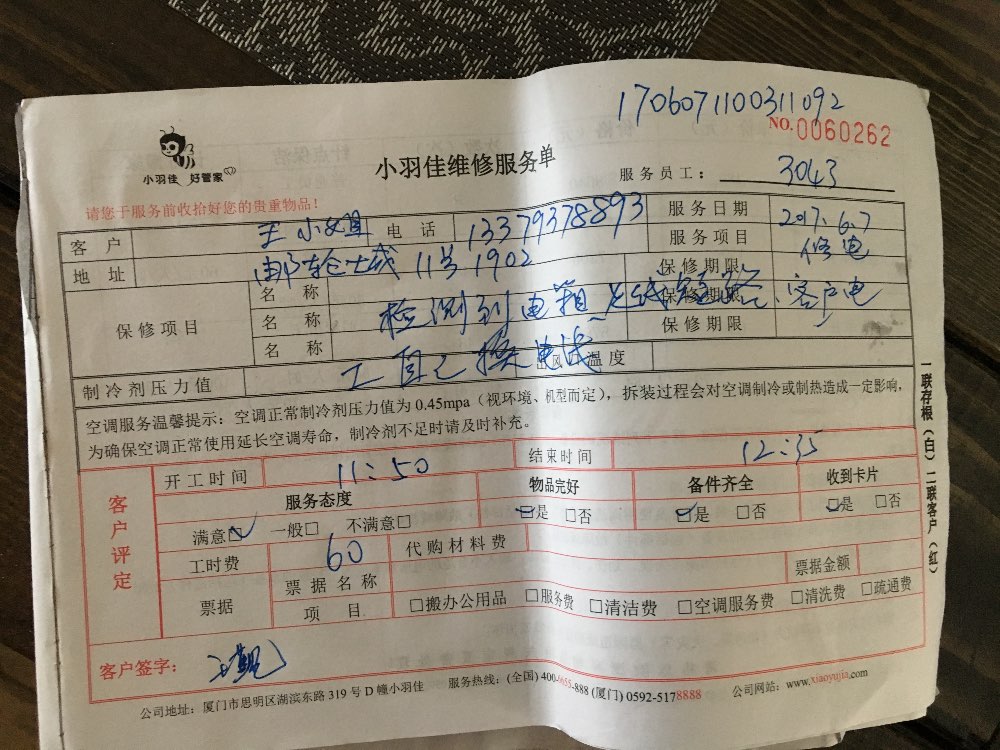 1706071100311092
NO.0060262
小羽佳 好管家
小羽佳维修服务单
服务员工： 3043
请您于服务前收拾好您的贵重物品！
客户 王小姐 电话 13379378893 服务日期 2017.6.7
地址 邮轮城 11号1902 服务项目 修电
保修项目 名称 保修期限
名称 检测到电箱 线短路、客户电 保修期限
名称 工自己换电线 保修期限
制冷剂压力值 出风口温度
空调服务温馨提示：空调正常制冷剂压力值为 0.45mpa（视环境、机型而定），拆装过程会对空调制冷或制热造成一定影响，
为确保空调正常使用延长空调寿命，制冷剂不足时请及时补充。
开工时间 11:50 结束时间 12:35
客户评定
服务态度 物品完好 备件齐全 收到卡片
满意☑ 一般□ 不满意□ ☑是 □否 ☑是 □否 ☑是 □否
工时费 60 代购材料费
票据 票据名称 票据金额
项目 □搬办公用品 □服务费 □清洁费 □空调服务费 □清洗费 □疏通费
客户签字：
公司地址：厦门市思明区湖滨东路 319 号 D 幢小羽佳 服务热线：(全国) 400-6655-888 (厦门) 0592-5178888 公司网站：www.xiaoyujia.com
一联存根（白）二联客户（红）